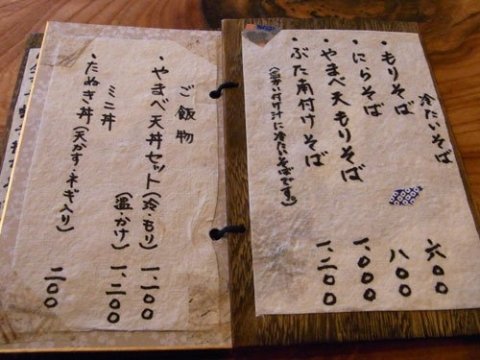 冷たいそば
・もりそば 六〇〇
・にらそば 八〇〇
・やまべ天もりそば 一、〇〇〇
・ぶた南付けそば 一、二〇〇
(温かい付け汁に冷たいそばです。)
ご飯物
・やまべ天丼セット(冷・もり) 一、二〇〇
(温・かけ) 一、二〇〇
ミニ丼
・たぬき丼(天かす・ネギ入り) 二〇〇